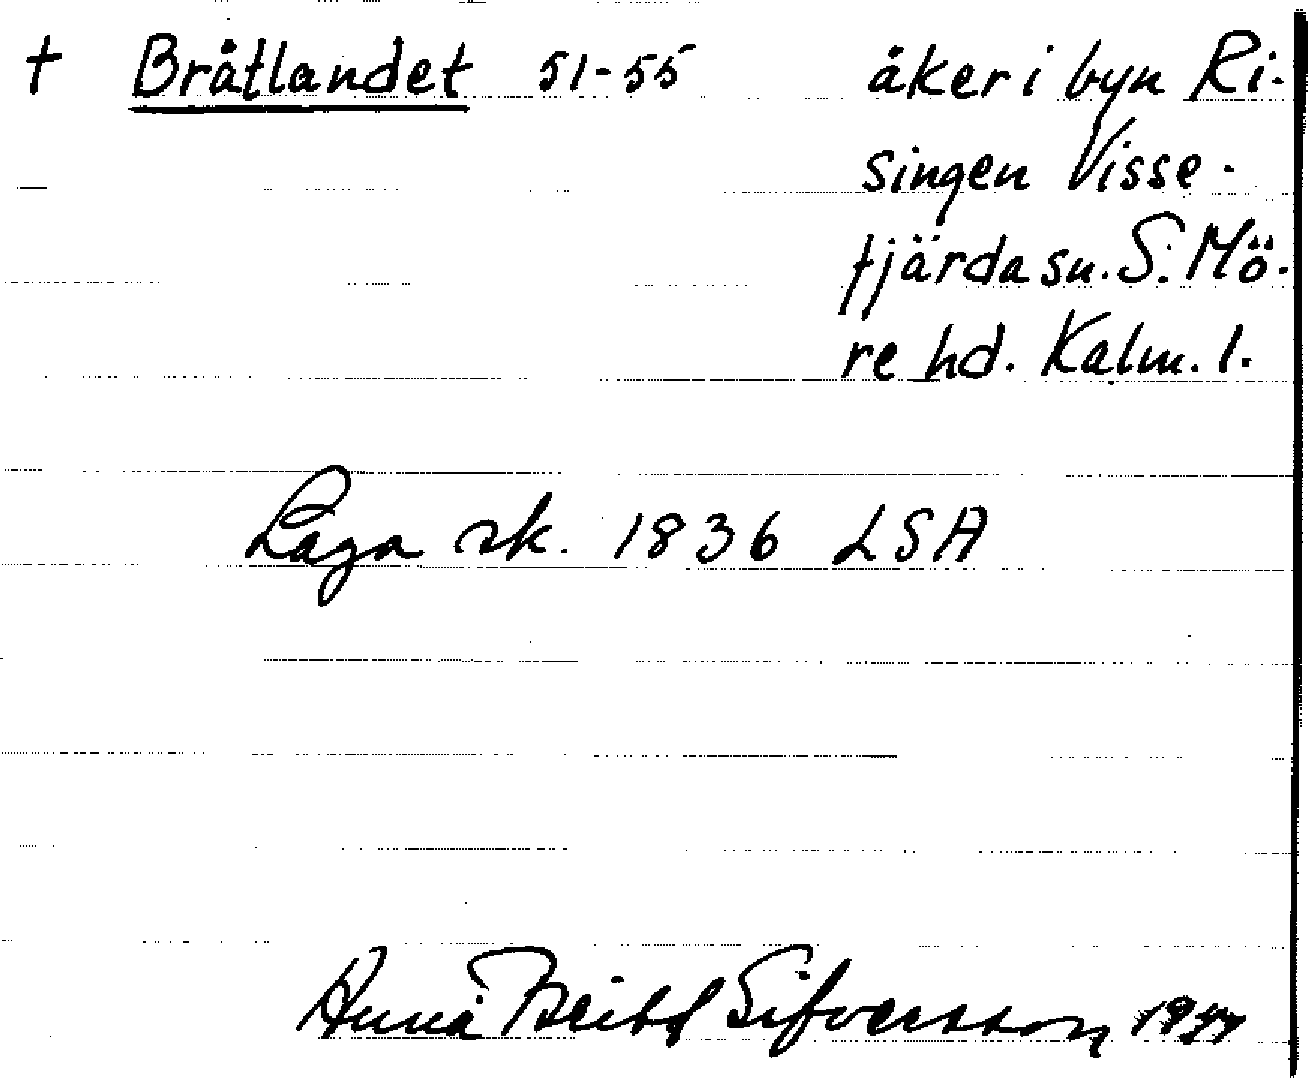 † Bråtlandet 51-55 åker i byn Ri-
singen Visse-
fjärda sn. S. Mö-
re hd. Kalm. l.
Laga sk. 1836 LSA
Anna Sifversson